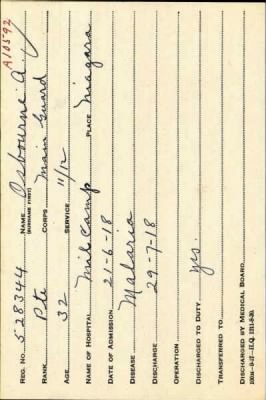 A10592
REG. NO. 528344 NAME Osbourne A.
(SURNAME FIRST)
RANK Pte CORPS Main Guard
AGE 32 SERVICE 11/12
NAME OF HOSPITAL Mil Camp PLACE Niagara
DATE OF ADMISSION 21-6-18
DISEASE Malaria
DISCHARGE 29-7-18
OPERATION
DISCHARGED TO DUTY yes
TRANSFERRED TO
DISCHARGED BY MEDICAL BOARD